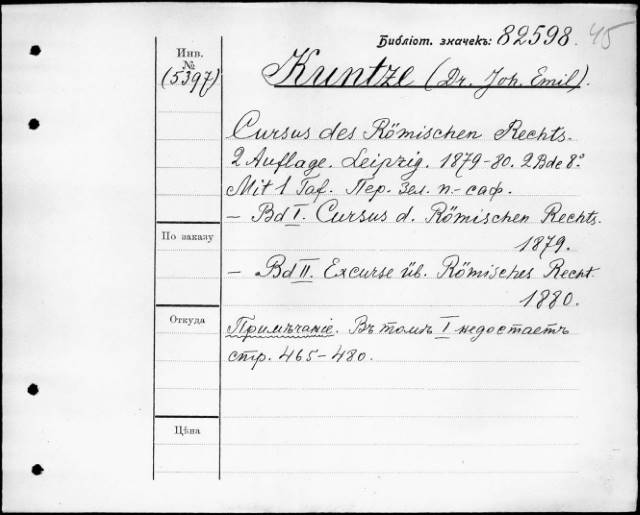 Библіот. значекъ: 82598. 45
Инв.
№
(5397)
Kuntze (Dr. Joh. Emil).
Cursus des Römischen Rechts.
2 Auflage. Leipzig. 1879-80. 2 Bde 8°.
Mit 1 Taf. Пер. зел. п.-саф.
— Bd I. Cursus d. Römischen Rechts.
1879.
По заказу
— Bd II. Excurse üb. Römisches Recht.
1880.
Откуда
Примѣчаніе. Въ томѣ I недостаетъ
стр. 465-480.
Цѣна